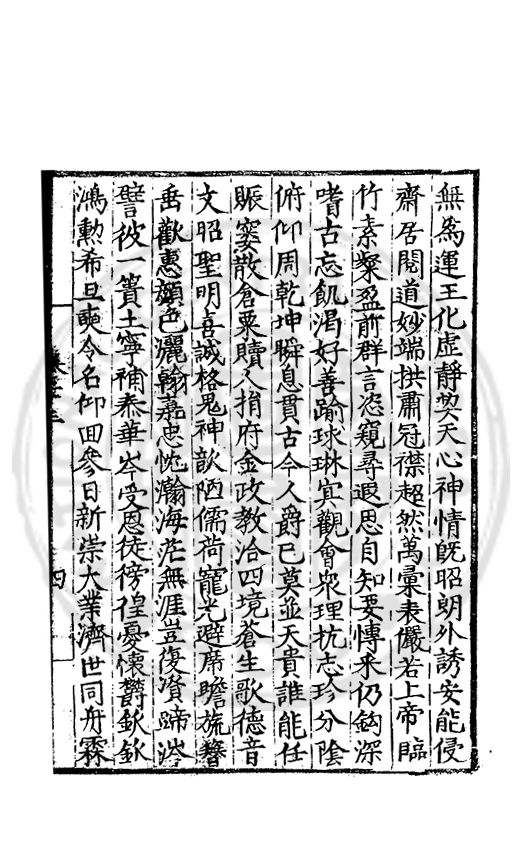 無爲運王化虛靜契天心神情旣昭朗外誘安能侵
齋居閱道妙端拱肅冠襟超然萬彙表儼若上帝臨
竹素粲盈前群言恣窺尋遐思自知要博采仍鈎深
嗜古忘飢渴好善踰球琳宜觀會衆理抗志珍分陰
俯仰周乾坤瞬息貫古今人爵已莫並天貴誰能任
賑窶散倉粟贖人捐府金政教洽四境蒼生歌德音
文昭聖明喜誠格鬼神歆陋儒荷寵光避席瞻旒簪
垂歡惠顏色灑翰嘉忠忱瀚海茫無涯豈復資蹄涔
譬彼一簣土寧補泰華岑受恩徒徬徨憂懷欝欽欽
鴻勳希旦奭令名仰回參日新崇大業濟世同舟霖
四